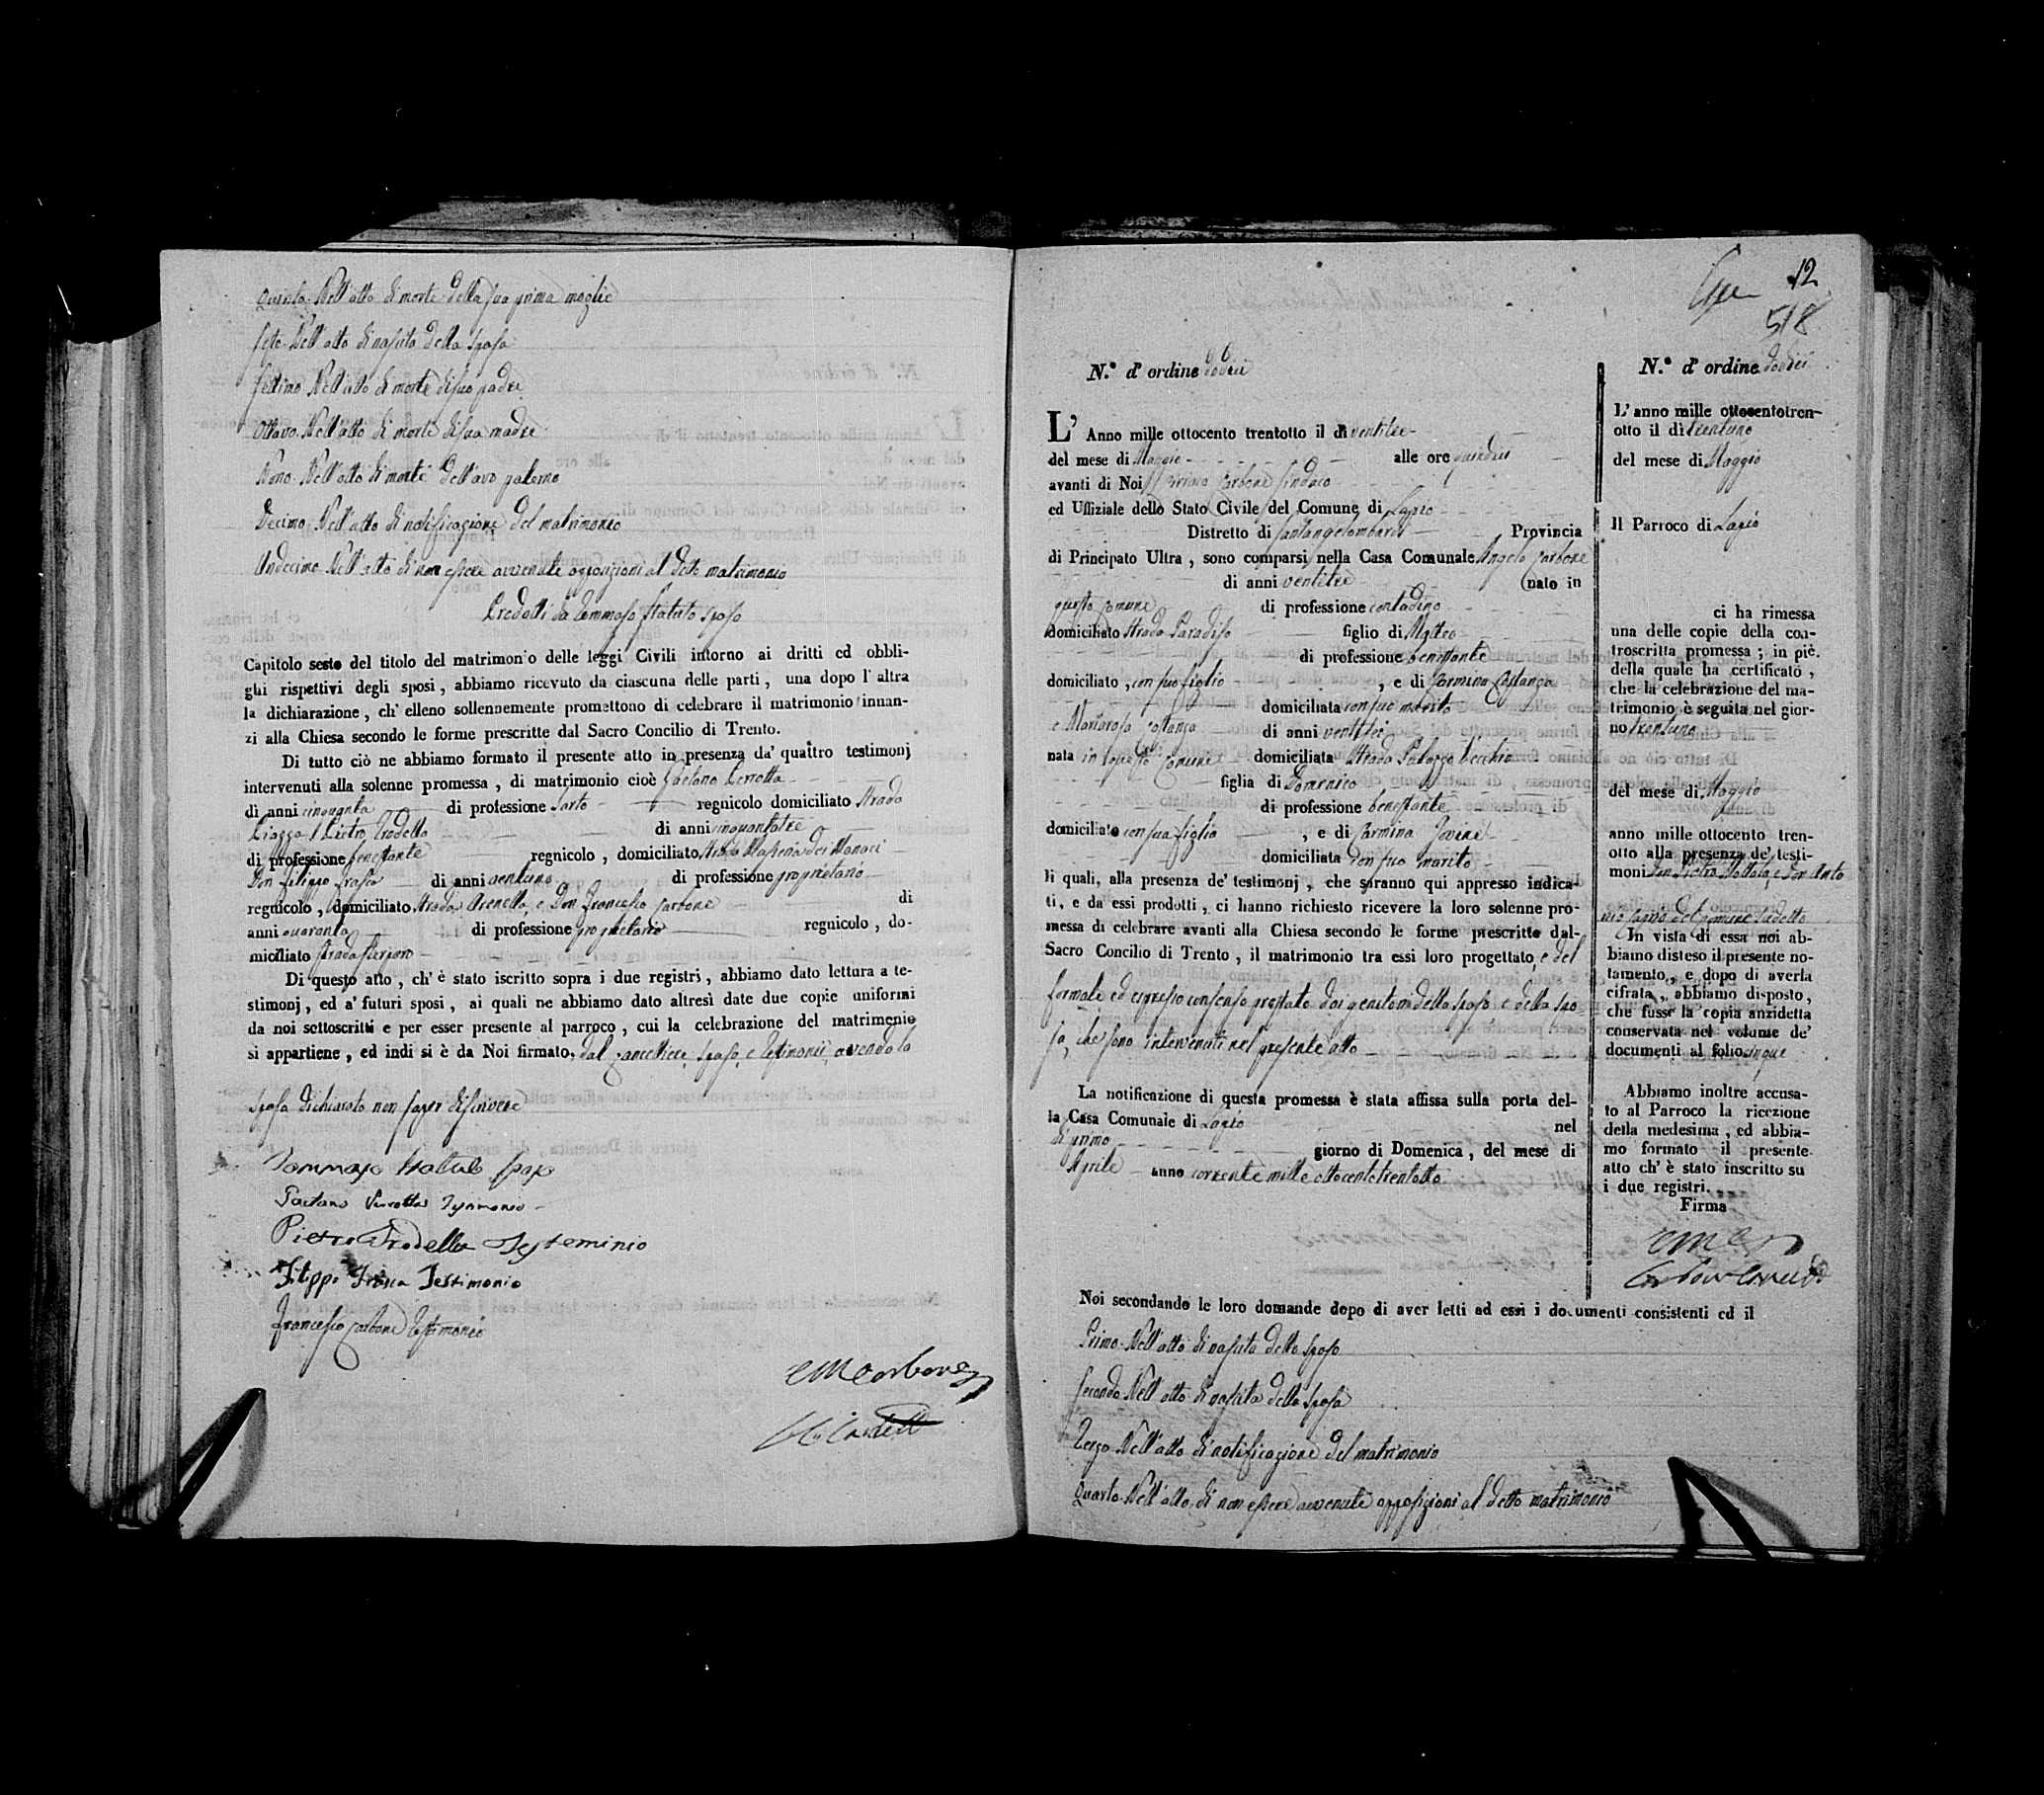 Quinto Nell'atto di morte della sua prima moglie
Sesto Nell'atto di nascita della sposa
Settimo Nell'atto di morte di suo padre
Ottavo Nell'atto di morte di sua madre
Nono Nell'atto di morte dell'avo paterno
Decimo Nell'atto di notificazione del matrimonio
Undecimo Nell'atto di non essere avvenute opposizioni al detto matrimonio
Prodotti da Tommaso Statuto sposo
Capitolo sesto del titolo del matrimonio delle leggi Civili intorno ai dritti ed obbli-
ghi rispettivi degli sposi, abbiamo ricevuto da ciascuna delle parti, una dopo l'altra
la dichiarazione, ch'elleno sollennemente promettono di celebrare il matrimonio innan-
zi alla Chiesa secondo le forme prescritte dal Sacro Concilio di Trento.
Di tutto ciò ne abbiamo formato il presente atto in presenza da' quattro testimonj
intervenuti alla solenne promessa, di matrimonio cioè Gaetano Perrotta
di anni cinquanta di professione Sarto regnicolo domiciliato Strada
Piazza Pietro Trodella di anni cinquantatre
di professione benestante regnicolo, domiciliato Strada Masseria dei Monaci
Don Filippo Frasca di anni ventuno di professione proprietario
regnicolo, domiciliato Strada Arenella, e Don Francesco Carbone di
anni quaranta di professione proprietario regnicolo, do-
miciliato Strada
Di questo atto, ch'è stato iscritto sopra i due registri, abbiamo dato lettura a te-
stimonj, ed a' futuri sposi, ai quali ne abbiamo dato altresì date due copie uniformi
da noi settoscritti e per esser presente al parroco, cui la celebrazione del matrimonio
si appartiene, ed indi si è da Noi firmato, dal Cancelliere, sposo, e testimonii, avendo la
sposa dichiarato non saper di scrivere
Tommaso Statuto sposo
Gaetano Perrotta Testimonio
Pietro Trodella Testeminio
Filippo Frasca Testimonio
Francesco Carbone Testimonio
CM Carbone
12
518
N.° d'ordine dodici
L'Anno mille ottocento trentotto il dì ventitre
del mese di Maggio alle ore quindici
avanti di Noi Ciriaco Carbone Sindaco
ed Uffiziale dello Stato Civile del Comune di Lapio
Distretto di Santangelolombardi Provincia
di Principato Ultra, sono comparsi nella Casa Comunale Angelo Carbone
di anni ventitre nato in
questo Comune di professione contadino
domiciliato Strada Paradiso figlio di Matteo
di professione benestante
domiciliato, con suo figlio, e di Carmina Costanza
domiciliata con suo marito
e Mariarosa Costanza di anni ventisei
nata in questo Comune domiciliata Strada Palazzo Vecchio
figlia di Domenico
di professione benestante
domiciliato con sua figlia, e di Carmina Iovine
domiciliata con suo marito
li quali, alla presenza de' testimonj, che saranno qui appresso indica-
ti, e da essi prodotti, ci hanno richiesto ricevere la loro solenne pro-
messa di celebrare avanti alla Chiesa secondo le forme prescritte dal-
Sacro Concilio di Trento, il matrimonio tra essi loro progettato, e del
formale ed espresso consenso prestato dai genitori dello sposo, e della spo
sa, che sono intervenuti nel presente atto
La notificazione di questa promessa è stata affissa sulla porta del-
la Casa Comunale di Lapio nel
dì primo giorno di Domenica, del mese di
Aprile anno corrente mille ottocentotrentotto
Noi secondando le loro domande dopo di aver letti ad essi i documenti consistenti ed il
Primo Nell'atto di nascita dello sposo
Secondo Nell'atto di nascita della sposa
Terzo Nell'atto di notificazione del matrimonio
Quarto Nell'atto di non essere avvenute opposizioni al detto matrimonio
N.° d'ordine dodici
L'anno mille ottocentotren-
otto il dì trentuno
del mese di Maggio
Il Parroco di Lapio
ci ha rimessa
una delle copie della con-
troscritta promessa; in piè
della quale ha certificato,
che la celebrazione del ma-
trimonio è seguita nel gior-
no trentuno
del mese di Maggio
anno mille ottocento tren-
otto alla presenza de' testi-
moni Don Pietro e Don Anto
nio del Comune sudetto
In vista di essa noi ab-
biamo disteso il presente no-
tamento, e dopo di averla
cifrata, abbiamo disposto,
che fusse la copia anzidetta
conservata nel volume de'
documenti al folio cinque
Abbiamo inoltre accusa-
to al Parroco la ricezione
della medesima, ed abbia-
mo formato il presente
atto ch'è stato inscritto su
i due registri.
Firma